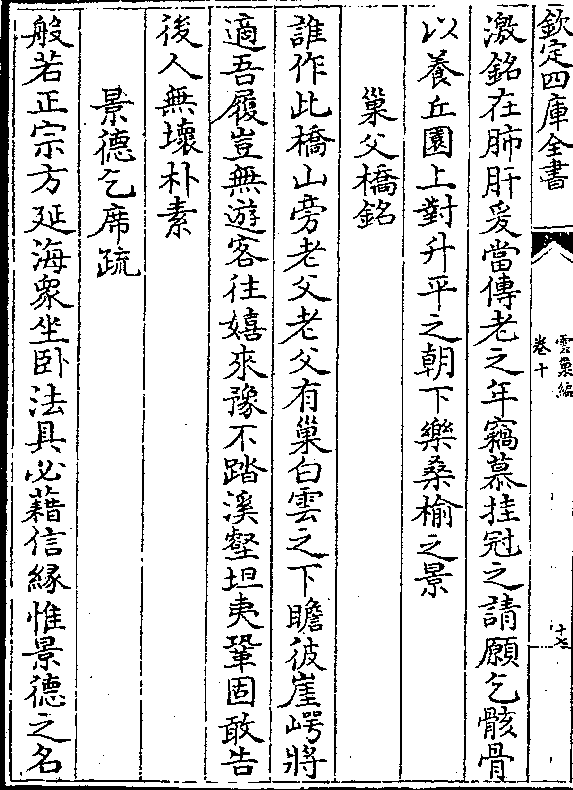 欽定四庫全書
雲巢編
卷十
十七
激銘在肺肝爰當傳老之年竊慕挂冠之請願乞骸骨
以養丘園上對升平之朝下樂桑榆之景
巢父橋銘
誰作此橋山旁老父老父有巢白雲之下瞻彼崖崿將
適吾履豈無遊客往嬉來豫不踏溪壑坦夷鞏固敢告
後人無壞朴素
景德乞席疏
般若正宗方延海衆坐卧法具必藉信緣惟景德之名